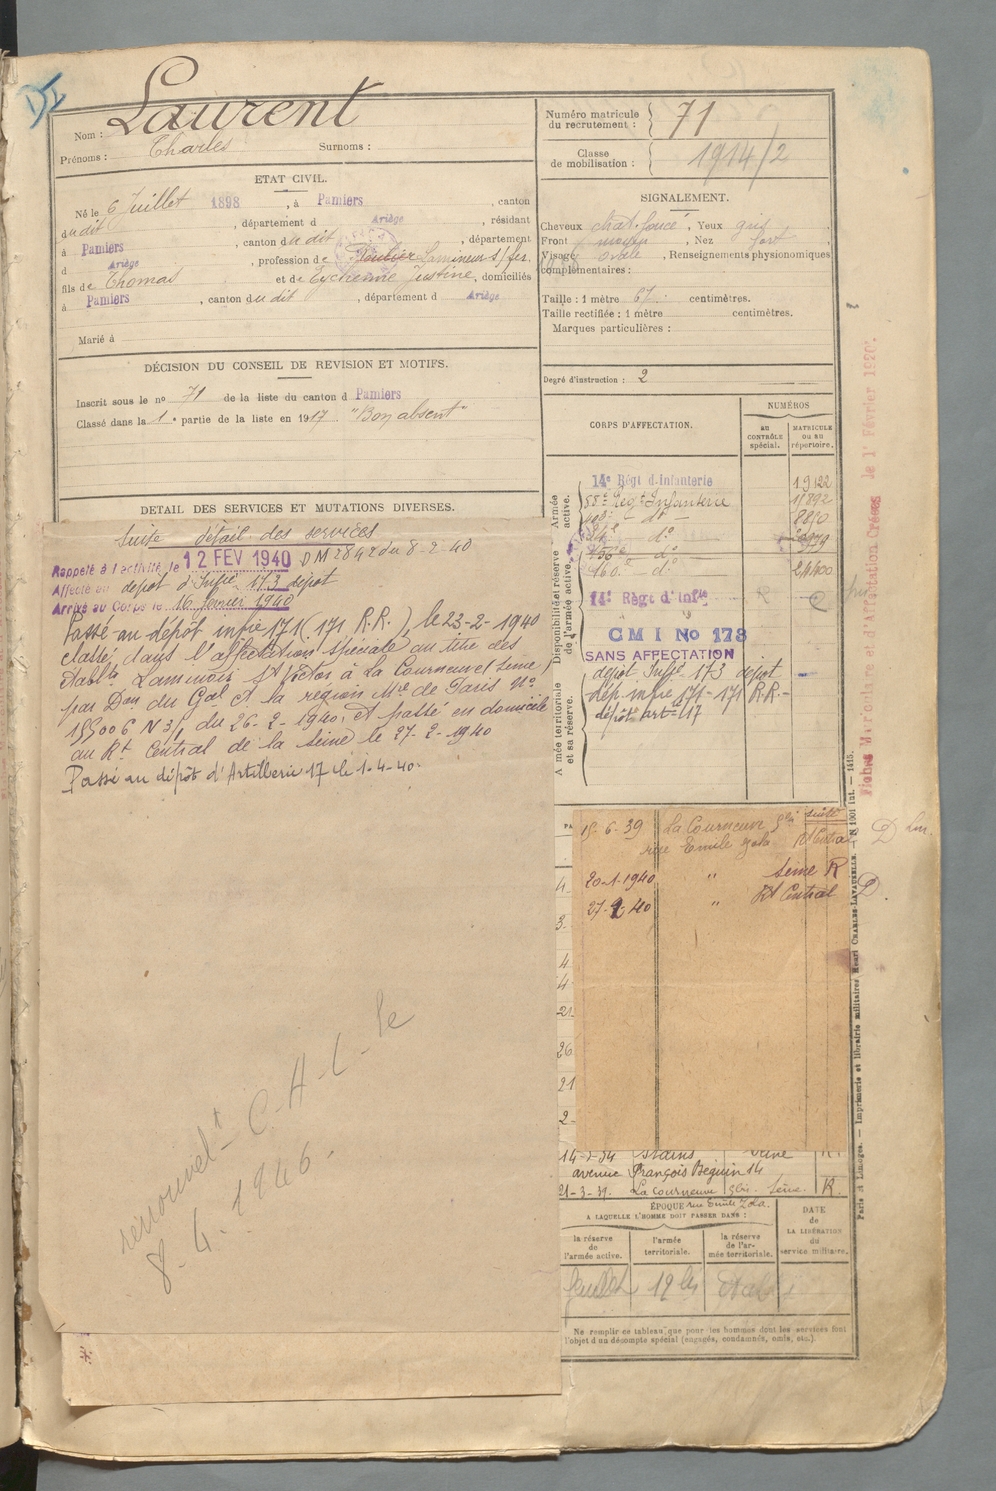 Laurent
Nom :
Prénoms : Charles Surnoms :
ETAT CIVIL.
Né le 6 Juillet 1898, à Pamiers, canton
dudit, département d Ariège, résidant
à Pamiers, canton dudit, département
d Ariège, profession de Lamineur s/fer.
fils de Thomas et de Eychenne Justine, domiciliés
à Pamiers, canton dudit, département d Ariège
Marié à
DÉCISION DU CONSEIL DE REVISION ET MOTIFS.
Inscrit sous le nº 71 de la liste du canton d Pamiers
Classé dans la 1e partie de la liste en 1917 "Bon absent"
DETAIL DES SERVICES ET MUTATIONS DIVERSES.
Suite détail des services
Rappelé à l'activité le 12 FEV 1940 DM 2842 du 8-2-40
Affecté au dépôt d'Infie 173 dépôt
Arrivé au Corps le 16 février 1940
Passé au dépôt infie 171 (171 R.R.), le 23-2-1940
classé dans l'affectation spéciale au titre des
Etablts Laminoir St Victor à la Courneuve (Seine)
par Don du Gal Ct la région Mre de Paris nº
155006 N 3/, du 26-2-1940, et passé en domicile
au Rt Central de la Seine le 27-2-1940
Passé au dépôt d'Artillerie 17 le 1-4-40.
8. 4. 1946.
Numéro matricule
du recrutement : 71
Classe
de mobilisation : 1914/2
SIGNALEMENT.
Cheveux chat. foncé, Yeux gris
Front moyen, Nez fort
Visage ovale, Renseignements physionomiques
complémentaires :
Taille : 1 mètre 67 centimètres.
Taille rectifiée : 1 mètre centimètres.
Marques particulières :
Degré d'instruction : 2
CORPS D'AFFECTATION.
NUMÉROS
AU CONTRÔLE spécial.
MATRICULE ou au répertoire.
Armée active.
Disponibilité et réserve de l'armée active.
Armée territoriale et sa réserve.
14e Régt d'infanterie 19122
88e Régt Infanterie 11892
do 8850
do
do
160e do 24400
14e Régt d'Infie R
CMI No 178
SANS AFFECTATION
dépôt Infie 173 dépôt
dép. infie 171-171 R.R.-
dépôt art-ie 17
Fiches Matriculaire et d'Affectation Créées le 1er Février 1926.
suite
15-6-39 La Courneuve 3bis Rt Central
rue Emile Zola
20-1-1940 " Seine R
27-2-40 " Rt Central D.
14-2-34 Stains Seine R
avenue François Beguin 14
21-3-39. La Courneuve 3bis. Seine. R.
rue Emile Zola.
ÉPOQUE
A LAQUELLE L'HOMME DOIT PASSER DANS :
la réserve de l'armée active.
l'armée territoriale.
la réserve de l'armée territoriale.
DATE de LA LIBÉRATION du service militaire.
Ne remplir ce tableau que pour les hommes dont les services font
l'objet d'un décompte spécial (engagés, condamnés, omis, etc.).
Paris et Limoges. — Imprimerie et librairie militaires Henri CHARLES-LAVAUZELLE. — N° 1001 int. — 1415.